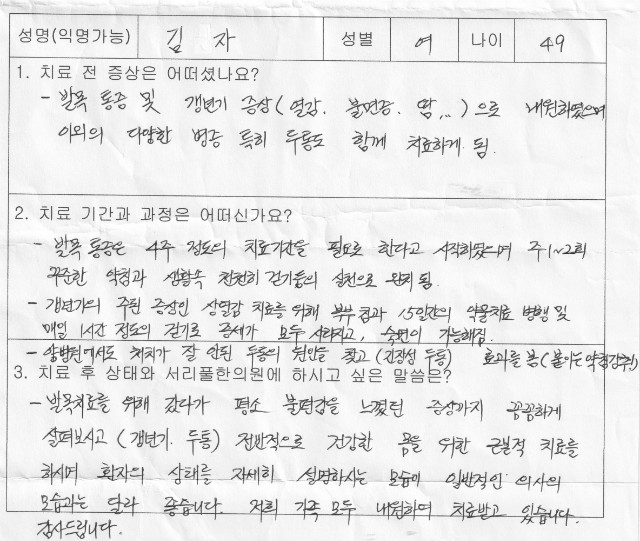 성명(익명가능) 김 자 성별 여 나이 49
1. 치료 전 증상은 어떠셨나요?
- 발목 통증 및 갱년기 증상(열감, 불면증, 땀...)으로 내원하였으며
이외의 다양한 병증 특히 두통도 함께 치료하게 됨.
2. 치료 기간과 과정은 어떠신가요?
- 발목 통증은 4주 정도의 치료기간을 필요로 한다고 시작하였으며 주1~2회
꾸준한 약침과 생활속 천천히 걷기등의 실천으로 완치 됨.
- 갱년기의 주된 증상인 상열감 치료를 위해 복부 침과 15일간의 약물치료 병행 및
매일 1시간 정도의 걷기로 증세가 모두 사라지고, 숙면이 가능해짐.
- 에서도 처치가 잘 안된 두통의 원인을 찾고(긴장성 두통) 효과를 봄(붙이는약침)
3. 치료 후 상태와 서리풀한의원에 하시고 싶은 말씀은?
- 발목치료를 위해 갔다가 평소 불편감을 느꼈던 증상까지 꼼꼼하게
살펴보시고(갱년기. 두통) 전반적으로 건강한 몸을 위한 근본적 치료를
하시며 환자의 상태를 자세히 설명하시는 모습이 일반적인 의사의
모습과는 달라 좋습니다. 저희 가족 모두 내원하여 치료받고 있습니다.
감사드립니다.